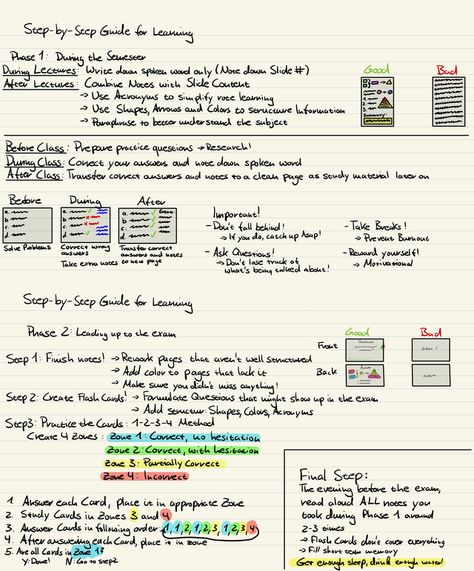 Step-by-Step Guide for Learning
Phase 1: During the Semester
During Lectures: Write down spoken word only (Note down Slide #)
After Lectures: Combine Notes with Slide Content
→ Use Acronyms to simplify rote learning
→ Use Shapes, Arrows and Colors to Structure Information
→ Paraphrase to better understand the subject
Good
Bad
Summary:
Before Class: Prepare practice questions → Research!
During Class: Correct your answers and note down spoken word
After Class: Transfer correct answers and notes to a clean page as study material later on
Before
During
After
Solve Problems
Correct wrong answers
Take extra notes
Transfer correct answers and notes to new page
Important!
- Don't fall behind!
→ If you do, catch up Asap!
- Ask Questions!
→ Don't lose track of what's being talked about!
- Take Breaks!
→ Prevent Burnout
- Reward yourself!
→ Motivational
Step-by-Step Guide for Learning
Phase 2: Leading up to the exam
Good
Bad
Front
Back
Step 1: Finish notes! → Rework pages that aren't well structured
→ Add color to pages that lack it
→ Make sure you didn't miss anything!
Step 2: Create Flash Cards! → Formulate Questions that might show up in the exam
→ Add structure: Shapes, Colors, Acronyms
Step 3: Practice the Cards: 1-2-3-4 Method
Create 4 Zones:
Zone 1: Correct, no hesitation
Zone 2: Correct, with hesitation
Zone 3: Partially Correct
Zone 4: Incorrect
1 Answer each Card, place it in appropriate Zone
2. Study Cards in Zones 3 and 4
3. Answer Cards in following order 1, 1, 2, 1, 2, 3, 1, 2, 3, 4.
4. After answering Card, place it in zone
5. Are all Cards in Zone 1?
Y: Done! N: Go to Step 2
Final Step:
The evening before the exam, read aloud ALL notes you took during Phase 1 around 2-3 times
→ Flash Cards don't cover everything
→ Fill short term memory
Get enough sleep, drink enough water!